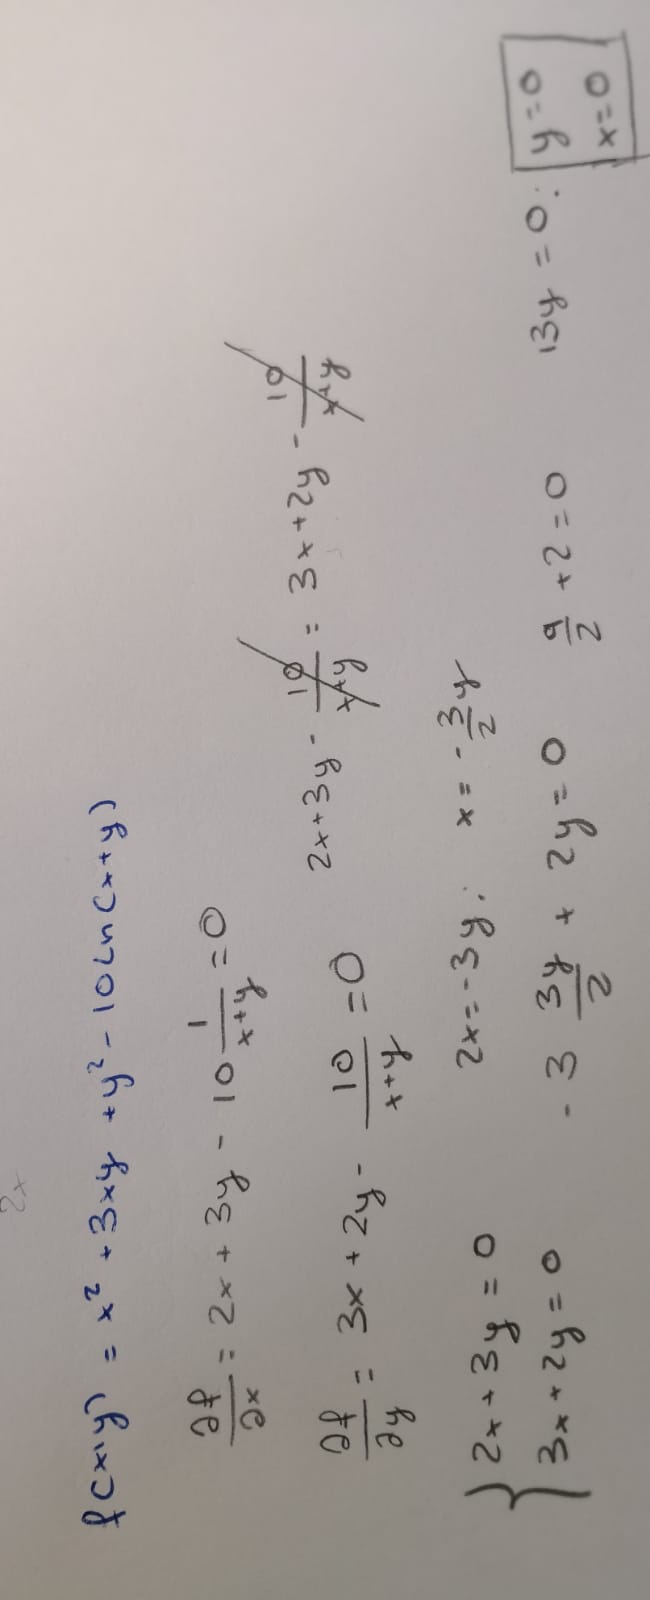 2x
f(x,y) = x² + 3xy + y² - 10 Ln(x+y)
∂f/∂x = 2x + 3y - 10 1/(x+y) = 0
∂f/∂y = 3x + 2y - 10/(x+y) = 0 2x + 3y - 10/(x+y) = 3x + 2y - 10/(x+y)
{ 2x + 3y = 0 2x = -3y : x = -3/2 y
{ 3x + 2y = 0 -3 3y/2 + 2y = 0 9/2 + 2 = 0 13y = 0 : y = 0
x = 0